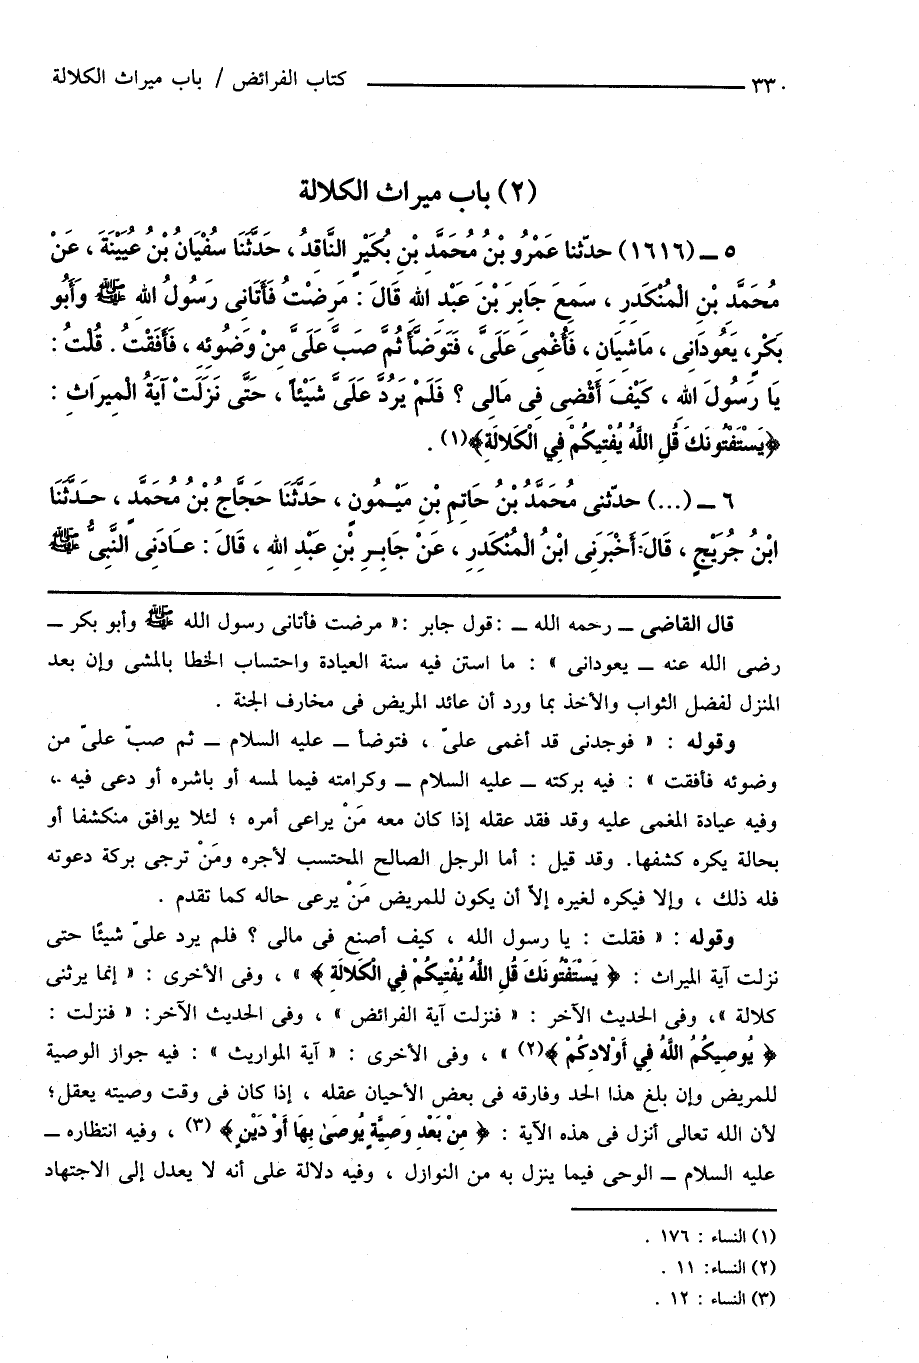 ٣٣٠ ــــــــــــ كتاب الفرائض / باب ميراث الكلالة
(٢) باب ميراث الكلالة
٥ ــ (١٦١٦) حدّثنا عَمْرُو بْنُ مُحَمَّدِ بْنِ بُكَيْرٍ النَّاقدُ ، حَدَّثَنَا سفْيَانُ بْنُ عُيَيْنَةَ ، عَنْ
مُحَمَّد بْنِ الْمُنْكَدر ، سَمِعَ جَابرَ بْنَ عَبْد الله قَالَ : مَرضْتُ فَأَتَانى رَسُولُ الله ﷺ وَأَبُو
بَكْرٍ، يَعُودَانى ، مَاشيَان ، فَأُغْمىَ عَلَىَّ ، فَتَوَضَّأَ ثُمَّ صَبَّ عَلَىَّ منْ وَضُوئه ، فَأَفَقْتُ . قُلْتُ :
يَا رَسُولَ الله ، كَيْفَ أَقْضى فى مَالى ؟ فَلَمْ يَرُدَّ عَلَىَّ شَيْئاً ، حَتَّى نَزَلَتْ آيَةُ الْميرَاث :
﴿يَسْتَفْتُونَكَ قُلِ اللَّهُ يُفْتِيكُمْ فِي الْكَلالَةِ﴾(١) .
٦ ــ (...) حدّثنى مُحَمَّدُ بْنُ حَاتِمِ بْنِ مَيْمُونٍ ، حَدَّثَنَا حَجَّاجُ بْنُ مُحَمَّدٍ ، حَدَّثَنَا
ابْنُ جُرَيْجٍ ، قَالَ: أَخْبَرَنى ابْنُ الْمُنْكَدر ، عَنْ جَابِرِ بْنِ عَبْد الله ، قَالَ : عَادَنى النَّبىُّ ﷺ
قال القاضى ــ رحمه الله ــ :قول جابر :« مرضت فأتانى رسول الله ﷺ وأبو بكر ــ
رضى الله عنه ــ يعودانى » : ما استن فيه سنة العيادة واحتساب الخطا بالمشى وإن بعد
المنزل لفضل الثواب والأخذ بما ورد أن عائد المريض فى مخارف الجنة .
وقوله : « فوجدنى قد أغمى علىّ ، فتوضأ ــ عليه السلام ــ ثم صبّ علىّ من
وضوئه فأفقت » : فيه بركته ــ عليه السلام ــ وكرامته فيما لمسه أو باشره أو دعى فيه .،
وفيه عيادة المغمى عليه وقد فقد عقله إذا كان معه مَنْ يراعى أمره ؛ لئلا يوافق منكشفا أو
بحالة يكره كشفها. وقد قيل : أما الرجل الصالح المحتسب لأجره ومَنْ ترجى بركة دعوته
فله ذلك ، وإلا فيكره لغيره إلاّ أن يكون للمريض مَنْ يرعى حاله كما تقدم .
وقوله : « فقلت : يا رسول الله ، كيف أصنع فى مالى ؟ فلم يرد علىّ شيئًا حتى
نزلت آية الميراث : ﴿ يَسْتَفْتُونَكَ قُلِ اللَّهُ يُفْتِيكُمْ فِي الْكَلالَةِ ﴾ » ، وفى الأخرى : « إنما يرثنى
كلالة »، وفى الحديث الآخر : « فنزلت آية الفرائض » ، وفى الحديث الآخر: « فنزلت :
﴿ يُوصِيكُمُ اللَّهُ فِي أَوْلادِكُمْ ﴾(٢) » ، وفى الأخرى : « آية المواريث » : فيه جواز الوصية
للمريض وإن بلغ هذا الحد وفارقه فى بعض الأحيان عقله ، إذا كان فى وقت وصيته يعقل؛
لأن الله تعالى أنزل فى هذه الآية : ﴿ مِنْ بَعْدِ وَصِيَّةٍ يُوصَىٰ بِهَا أَوْ دَيْنٍ ﴾ (٣) ، وفيه انتظاره ــ
عليه السلام ــ الوحى فيما ينزل به من النوازل ، وفيه دلالة على أنه لا يعدل إلى الاجتهاد
(١) النساء : ١٧٦ .
(٢) النساء: ١١ .
(٣) النساء : ١٢ .